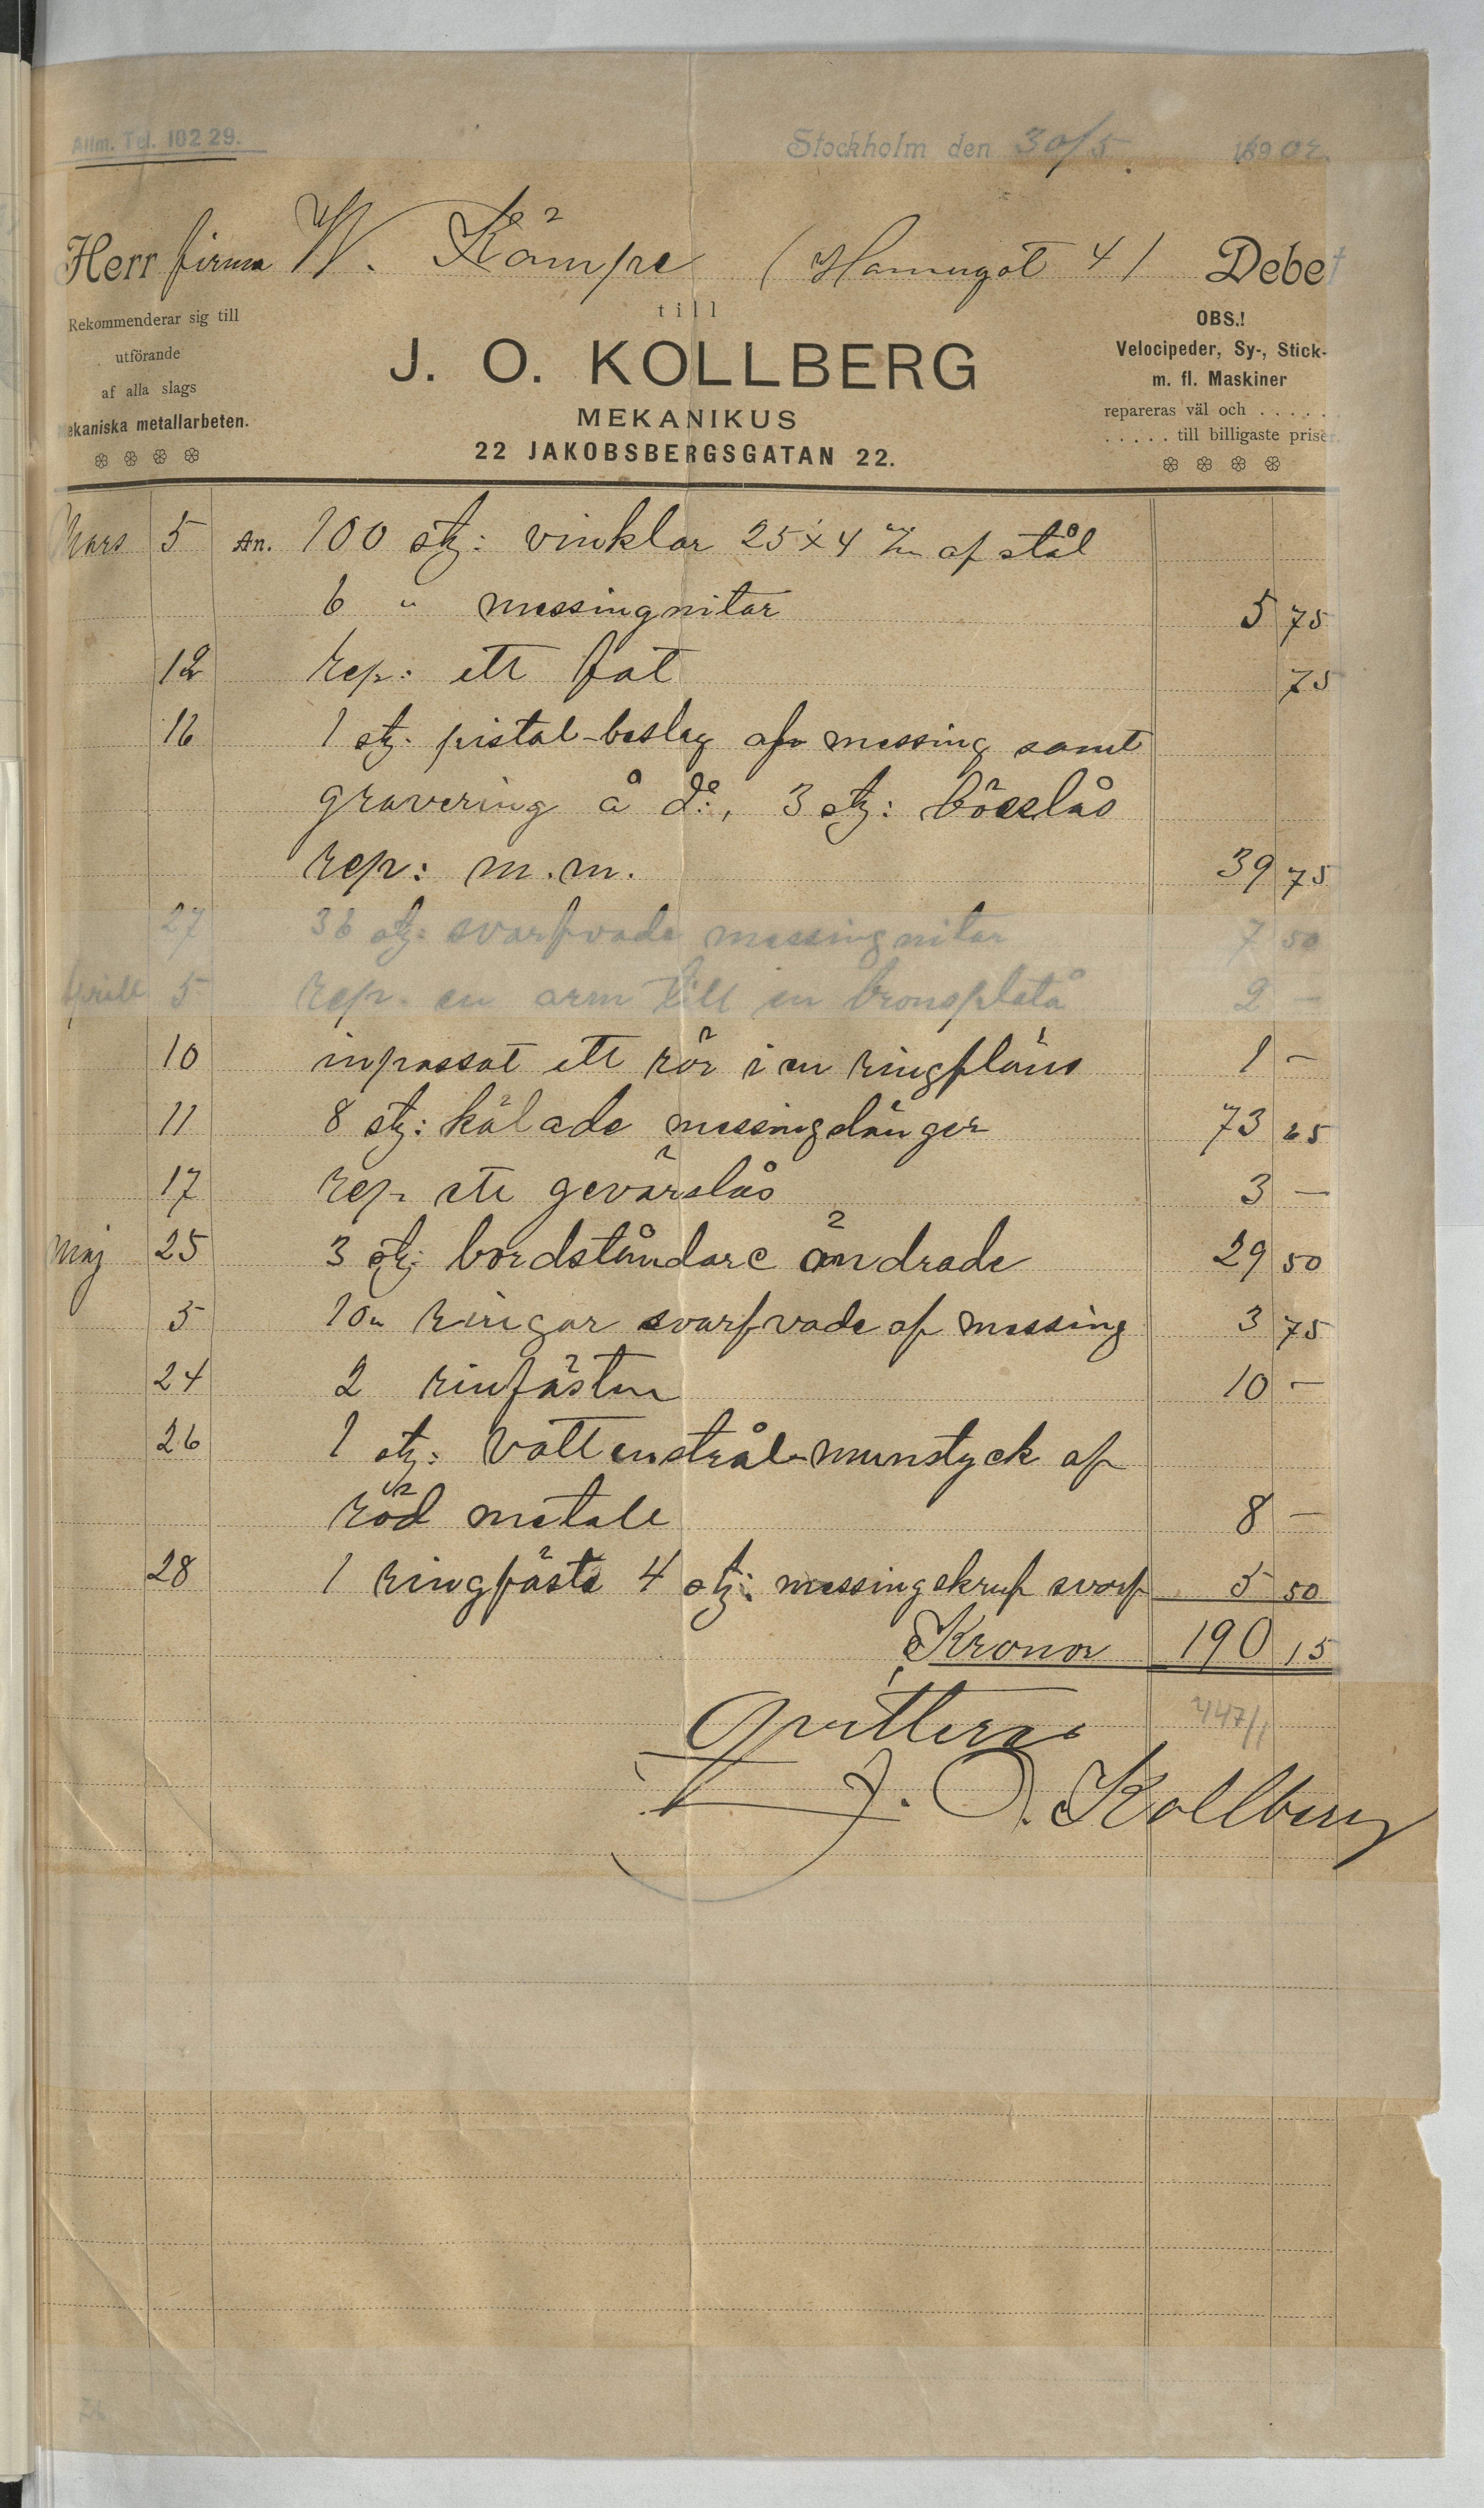 Allm. Tel. 102 29.
Stockholm den 30/5 1902.
Herr firma W. Kämpe (Hamngat 4) Debet
till
Rekommenderar sig till
utförande
af alla slags
Mekaniska metallarbeten.
J. O. KOLLBERG
MEKANIKUS
22 JAKOBSBERGSGATAN 22.
OBS.!
Velocipeder, Sy-, Stick-
m. fl. Maskiner
repareras väl och . . . . .
. . . . . till billigaste priser.
Mars 5 An. 100 stz: vinklar 25×4 m/m af stål
6 " messingnitar 5 75
12 rep: ett fat 75
16 1 stz. pistol-beslag af messing samt
gravering å do:, 3 stz: bösslås
rep: m.m. 39 75
27 36 stz: svarfvade messingnitar 7 50
Aprill 5 rep. en arm till en bronsplatå 2 —
10 inpassat ett rör i en ringfläns 1 —
11 8 stz: kälade messingslänger 73 65
17 rep. ett gevärslås 3 —
Maj 25 3 stz: bordståndare ändrade 29 50
5 10 " ringar svarfvade af messing 3 75
24 2 rinfästen 10 —
26 1 stz: vattenstrål-munstyck af
röd metall 8 —
28 1 ringfäste 4 stz: messingskruf svarf 5 50
Kronor 190 15
447/1
Qvitteras
J. O. Kollberg